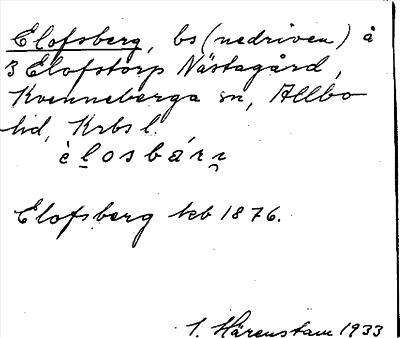 Elofsberg, bs (nedriven) å
3 Elofstorp Nästagård,
Kvenneberga sn, Allbo
hd, Krbs l.
è l o s b á r ɪ
Elofsberg kb 1876.
I. Härenstam 1933